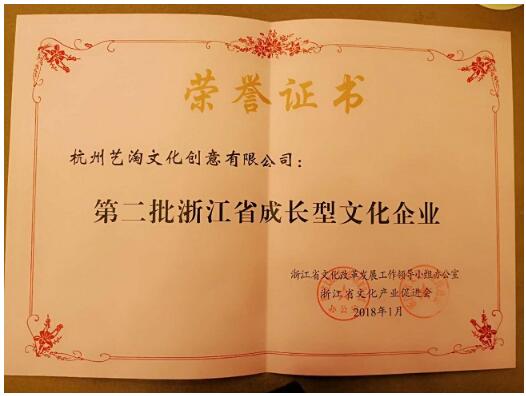 荣誉证书
杭州艺淘文化创意有限公司：
第二批浙江省成长型文化企业
浙江省文化改革发展工作领导小组办公室
浙江省文化产业促进会
办公室
2018年1月